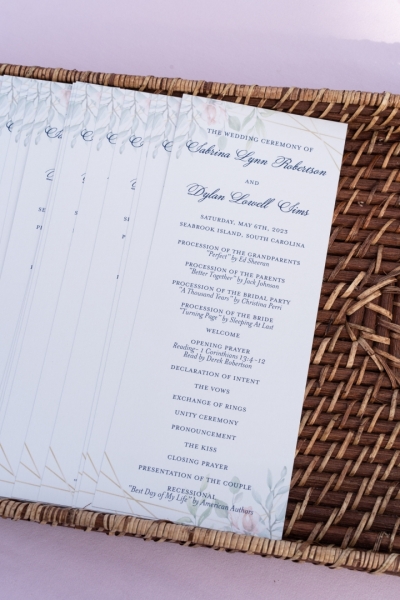 THE WEDDING CEREMONY OF
Sabrina Lynn Robertson
AND
Dylan Lowell Sims
SATURDAY, MAY 6TH, 2023
SEABROOK ISLAND, SOUTH CAROLINA
PROCESSION OF THE GRANDPARENTS
"Perfect" by Ed Sheeran
PROCESSION OF THE PARENTS
"Better Together" by Jack Johnson
PROCESSION OF THE BRIDAL PARTY
"A Thousand Years" by Christina Perri
PROCESSION OF THE BRIDE
"Turning Page" by Sleeping At Last
WELCOME
OPENING PRAYER
Reading- 1 Corinthians 13:4-12
Read by Derek Robertson
DECLARATION OF INTENT
THE VOWS
EXCHANGE OF RINGS
UNITY CEREMONY
PRONOUNCEMENT
THE KISS
CLOSING PRAYER
PRESENTATION OF THE COUPLE
RECESSIONAL
"Best Day of My Life" by American Authors